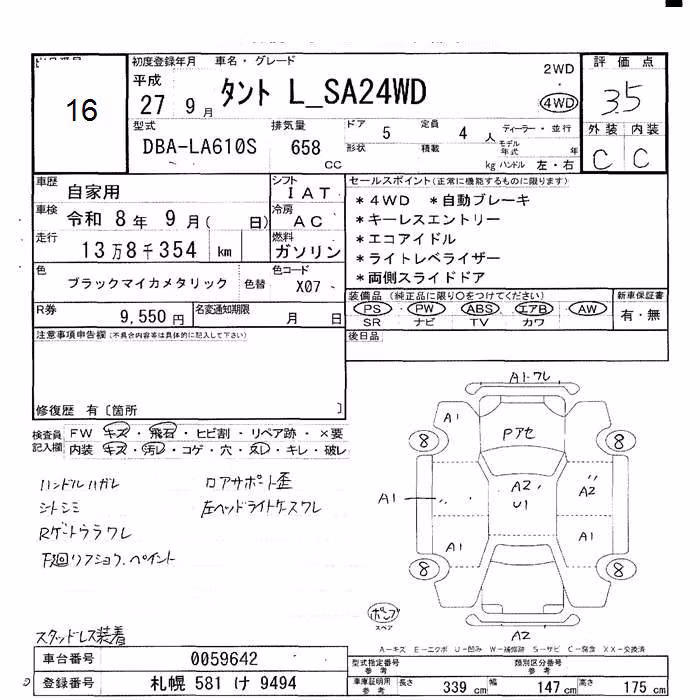 16
初度登録年月 車名・グレード
平成
27 9月
タント L_SA24WD
2WD
4WD
評価点
3.5
外装 内装
C C
型式
DBA-LA610S
排気量
658
cc
ドア
5
定員
4人
形状
積載
kg
ディーラー・並行
モデル年式 年
ハンドル 左・右
車歴
自家用
車検
令和 8年 9月( 日)
走行
13万8千354 km
シフト
IAT
冷房
AC
燃料
ガソリン
色
ブラックマイカメタリック
色替
色コード
X07
R券
9,550円
名変通知期限
月 日
セールスポイント(正常に機能するものに限ります)
*4WD *自動ブレーキ
*キーレスエントリー
*エコアイドル
*ライトレベライザー
*両側スライドドア
装備品(純正品に限り〇をつけてください)
PS・PW・ABS・エアB・AW
SR ナビ TV カワ
新車保証書
有・無
後日品
注意事項申告欄(不具合内容等は具体的に記入して下さい)
修復歴 有〔箇所 〕
検査員記入欄
FW キズ・飛石・ヒビ割・リペア跡・×要
内装 キズ・汚レ・コゲ・穴・ヌレ・キレ・破レ
ハンドルハガレ
シトシミ
Rゲートウラワレ
下廻リフショク、ペイント
コアサポート歪
左ヘッドライトケースワレ
スタッドレス装着
A1・ワレ
A1
Pアセ
8
8
A1
A2
U1
A2
A1
A1
8
8
A2
ポンプ
スペア
A-キズ E-エクボ U-凹み W-補修跡 S-サビ C-腐食 XX-交換済
車台番号
0059642
登録番号
札幌 581 け 9494
型式指定番号
参考
類別区分番号
参考
車庫証明用
参考
長さ 339 cm 幅 147 cm 高さ 175 cm